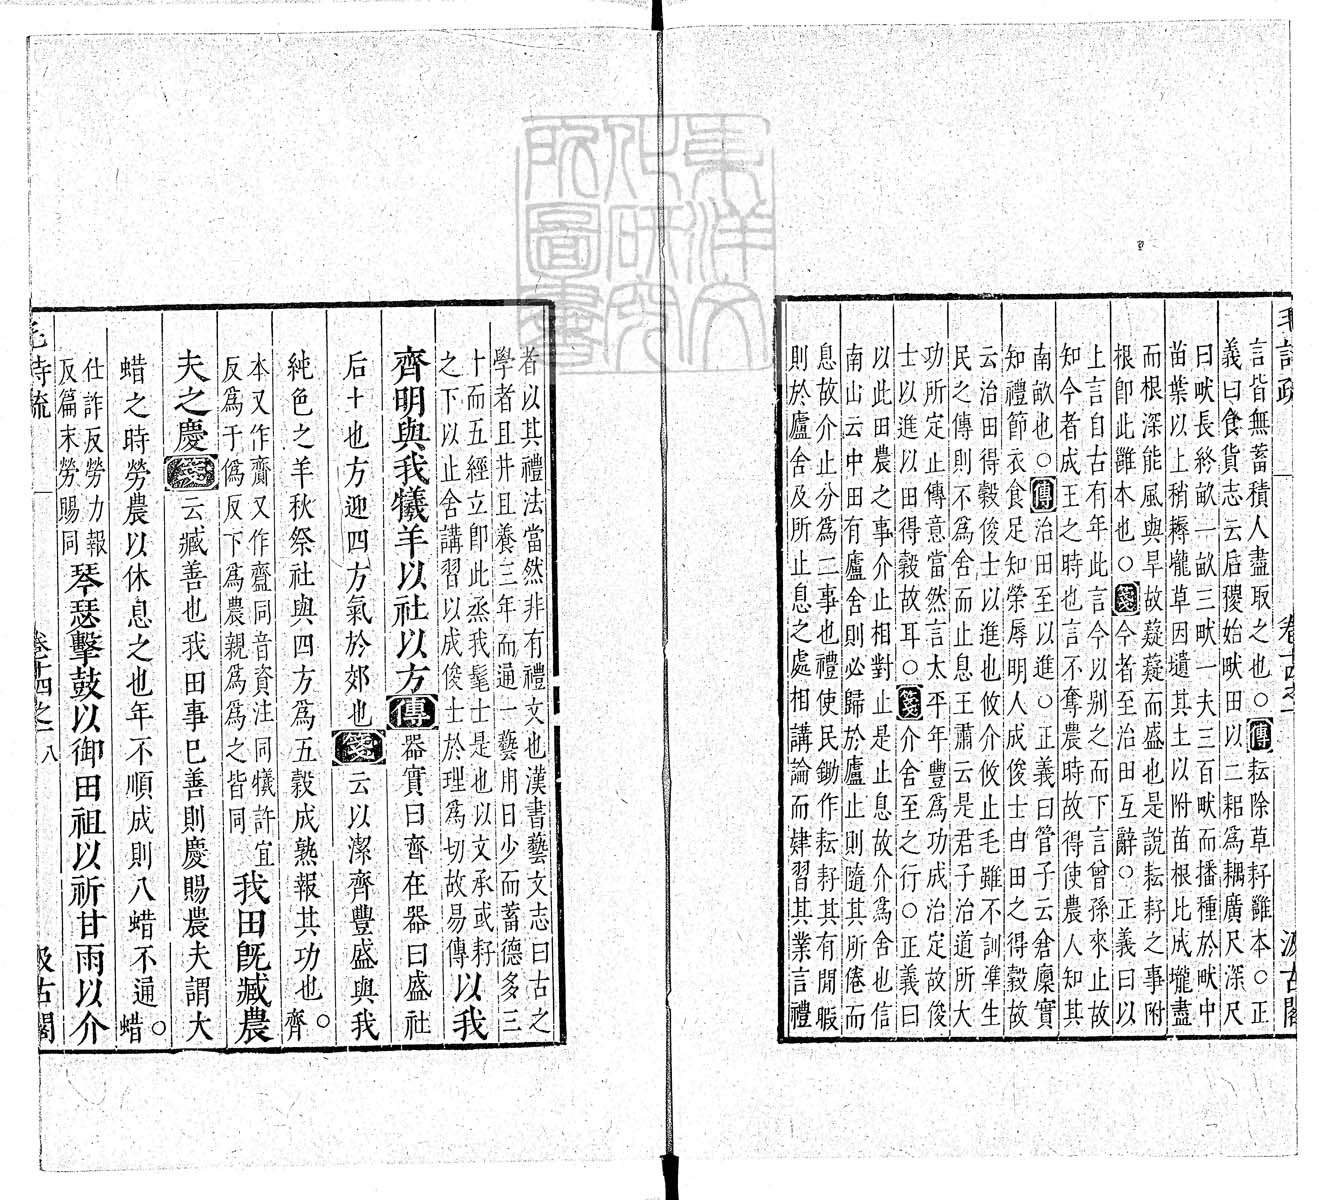 言皆無蓄積人盡取之也○傳耘除草耔雝本○正
義曰食貨志云后稷始甽田以二耜爲耦廣尺深尺
曰甽長終畝一畝三甽一夫三百甽而播種於甽中
苗葉以上稍耨壟草因壝其土以附苗根比成壟盡
而根深能風與旱故薿薿而盛也是說耘耔之事附
根卽此雝本也○箋今者至治田互辭○正義曰以
上言自古有年此言今以别之而下言曾孫來止故
知今者成王之時也言不奪農時故得使農人知其
南畝也○傳治田至以進○正義曰管子云倉廩實
知禮節衣食足知榮辱明人成俊士由田之得穀故
云治田得穀俊士以進也攸介攸止毛雖不訓準生
民之傳則不爲舍而止息王肅云是君子治道所大
功所定止傳意當然言太平年豐爲功成治定故俊
士以進以田得穀故耳○箋介舍至之行○正義曰
以此田農之事介止相對止是止息故介爲舍也信
南山云中田有廬舍則必歸於廬止則隨其所倦而
息故介止分爲二事也禮使民鋤作耘耔其有閒暇
則於廬舍及所止息之處相講論而肄習其業言禮
毛詩疏 卷十四之一 汲古閣
者以其禮法當然非有禮文也漢書藝文志曰古之
學者且井且養三年而通一藝用日少而蓄德多三
十而五經立卽此烝我髦士是也以文承或耔
之下以止舍講習以成俊士於理爲切故易傳
以我
齊明與我犧羊以社以方傳器實曰齊在器曰盛社
后土也方迎四方氣於郊也箋云以潔齊豐盛與我
純色之羊秋祭社與四方爲五穀成熟報其功也○齊
本又作齎又作齍同音資注同犧許宜
反爲于僞反下爲農親爲爲之皆同
我田旣臧農
夫之慶箋云臧善也我田事已善則慶賜農夫謂大
蜡之時勞農以休息之也年不順成則八蜡不通○蜡
仕詐反勞力報
反篇末勞賜同
琴瑟擊鼓以御田祖以祈甘雨以介
毛詩疏 卷十四之一 八 汲古閣
東洋文
化研究
所圖書